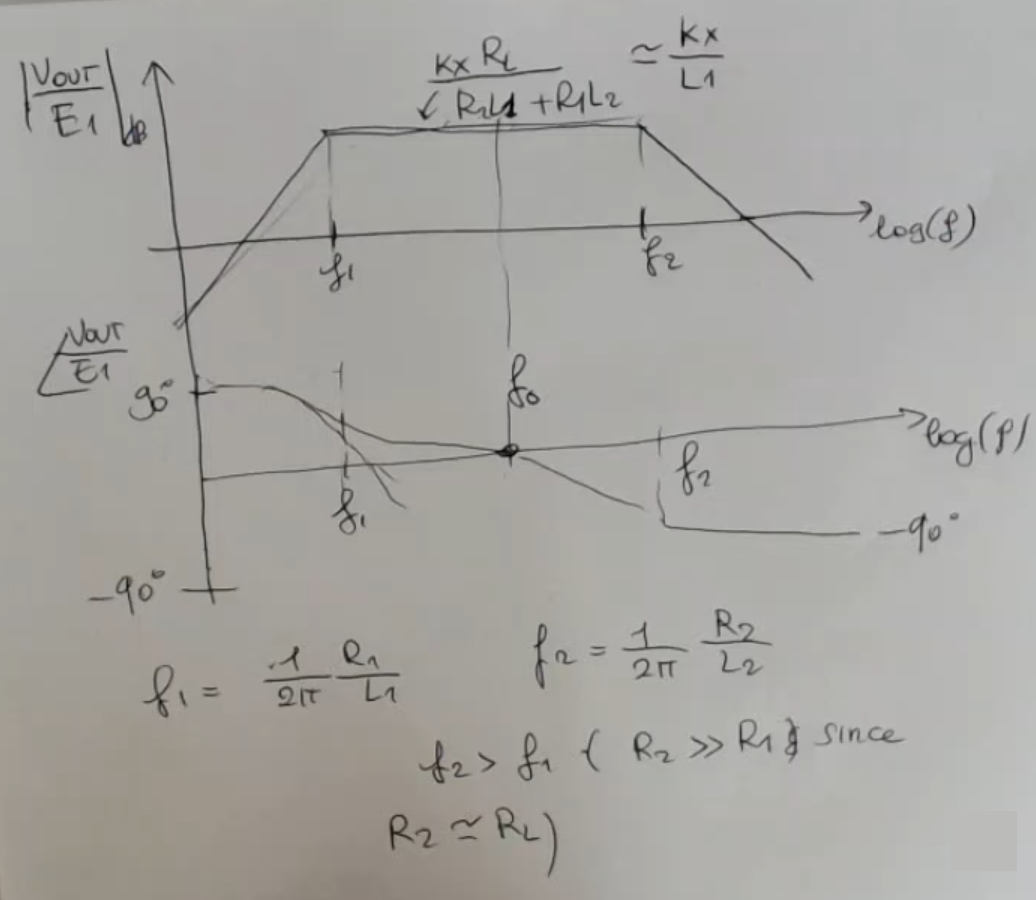 |Vout/E1|dB
Kx RL / (R2L1 + R1L2) ≃ Kx/L1
log(f)
f1
f2
∠Vout/E1
90°
f0
log(f)
f1
f2
-90°
-90°
f1 = 1/2π R1/L1
f2 = 1/2π R2/L2
f2 > f1 ( R2 >> R1 since
R2 ≃ RL)